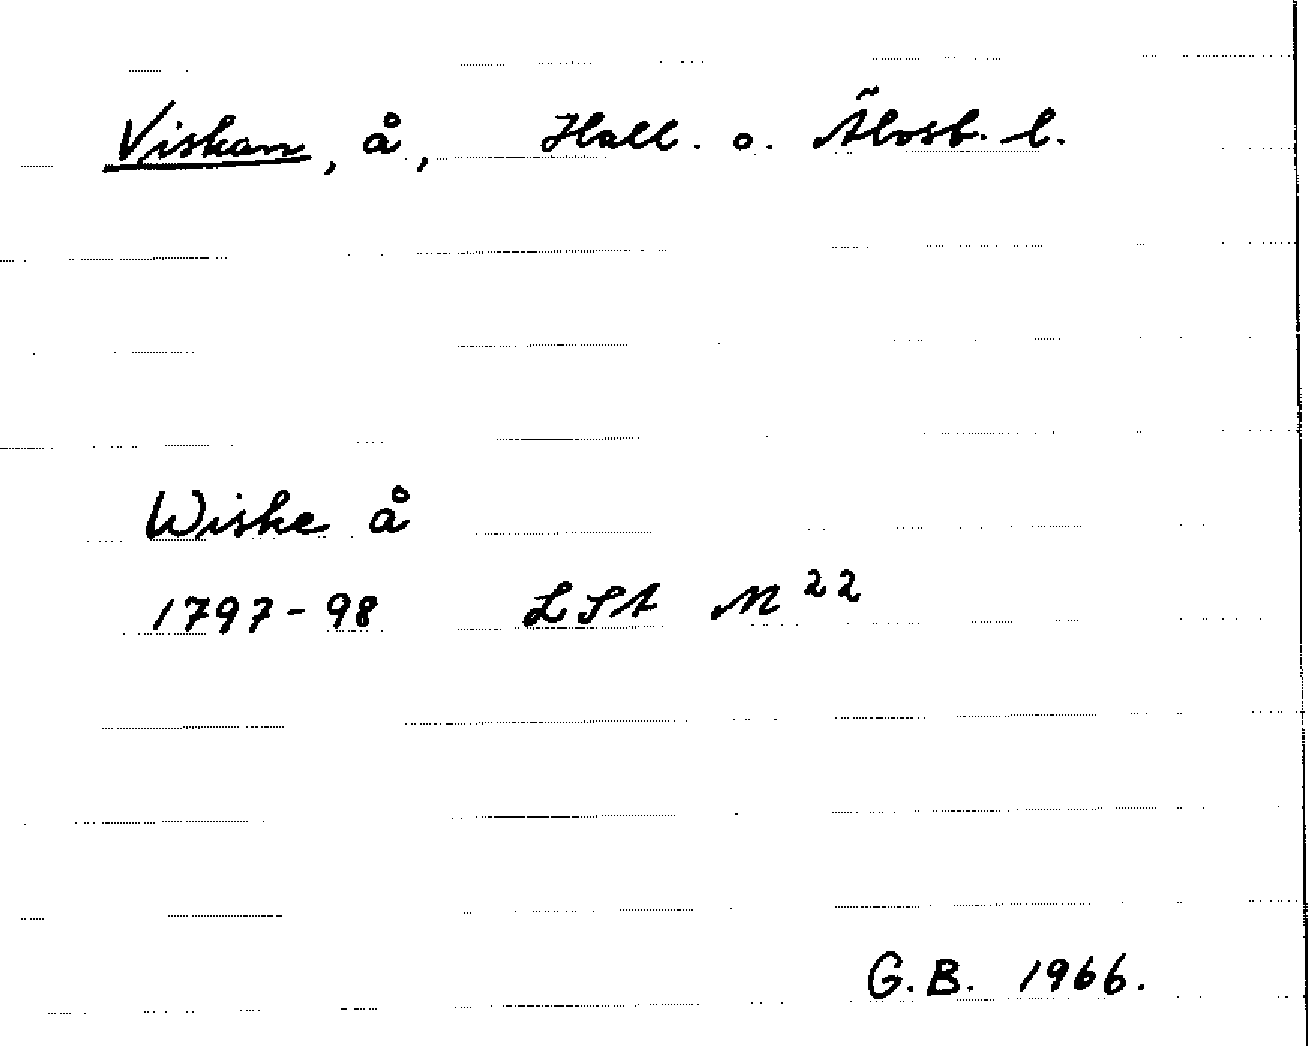 Viskan, å, Hall. o. Älvsb. l.
Wiske å
1797-98 LSA N 22
G.B. 1966.